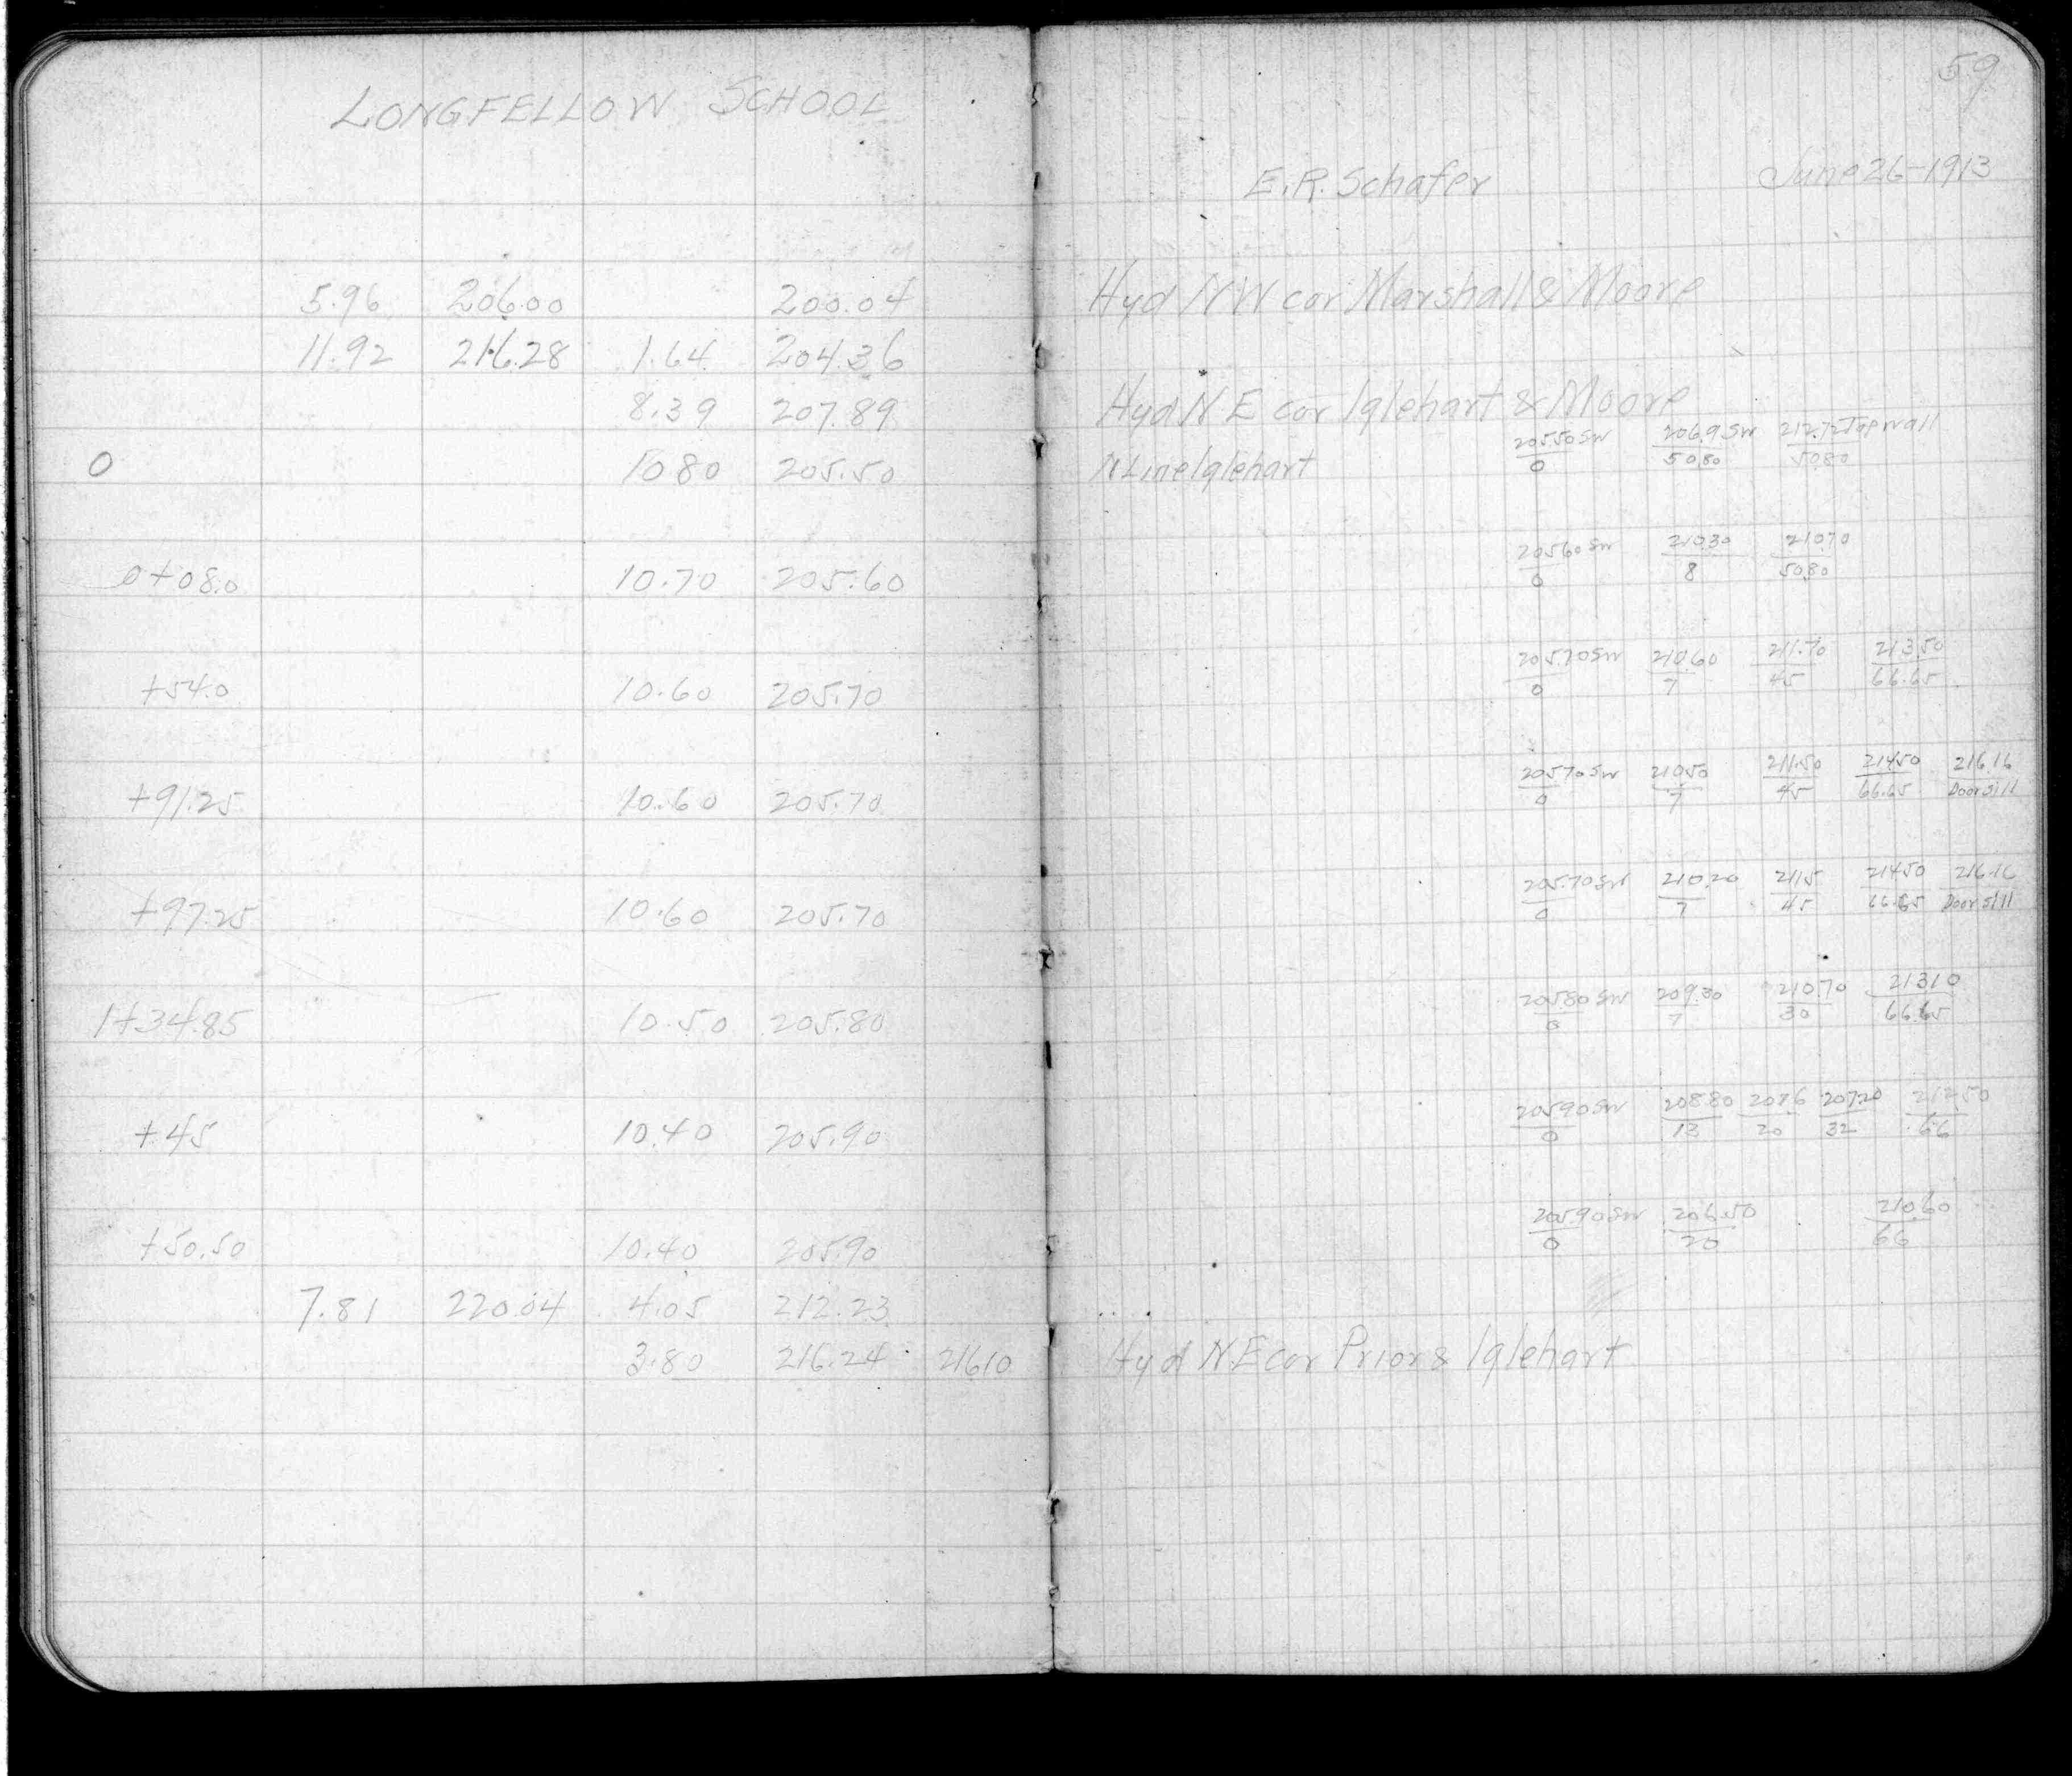 LONGFELLOW SCHOOL
5.96 206.00 200.04
11.92 216.28 1.64 204.36
8.39 207.89
0 10 80 205.50
0+08.0 10.70 205.60
+54.0 10.60 205.70
+91.25 10.60 205.70
+97.25 10.60 205.70
1+34.85 10.50 205.80
+45 10.40 205.90
+50.50 10.40 205.90
7.81 220.04 4.05 212.23
3.80 216.24 216.10
59
E.R. Schafer June 26-1913
Hyd NW cor Marshall & Moore
Hyd N E cor Iglehart & Moore
205.50 SW 206.9 SW 212.72 Top wall
N Line Iglehart 0 50.80 50.80
205.60 SW 210.30 210.70
0 8 50.80
205.70 SW 210.60 211.70 213.50
0 7 45 66.65
205.70 SW 210.50 211.50 214.50 216.16
0 7 45 66.65 Door sill
205.70 SW 210.20 211.5 214.50 216.16
0 7 45 66.65 Door sill
205.80 SW 209.30 210.70 213.10
0 7 30 66.65
205.90 SW 208.80 207.6 207.20 212.50
0 13 20 32 66
205.90 SW 206.50 210.60
0 20 66
Hyd N E cor Prior & Iglehart